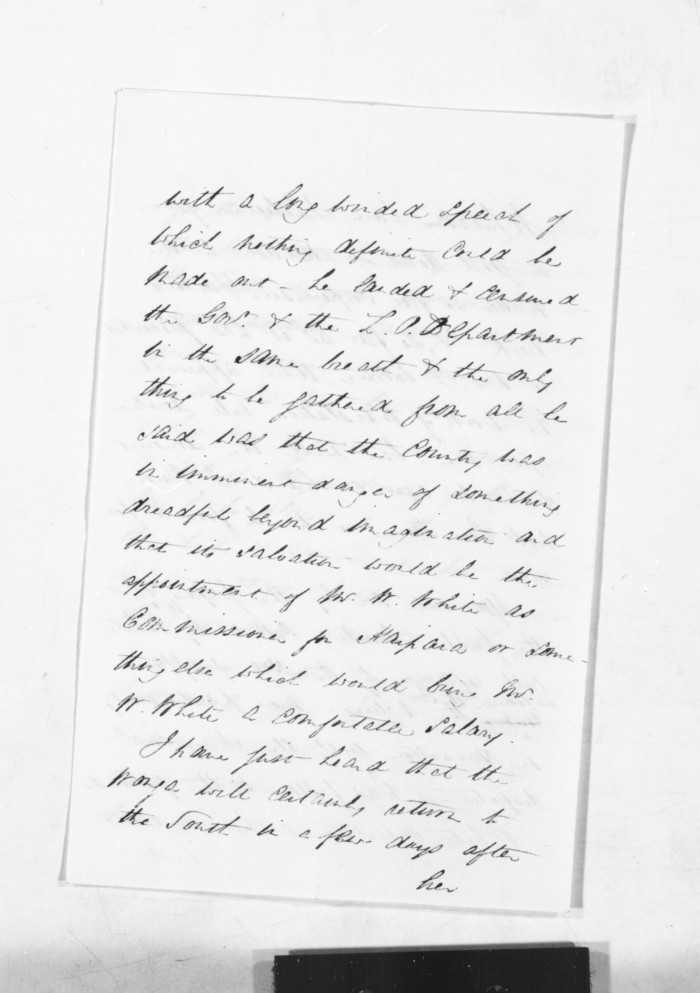 with a long winded speech of
which nothing definite could be
made out - he lauded & censured
the Gov. & the L. P. Department
in the same breath & the only
thing to be gathered from all he
said was that the Country was
in imminent danger of something
dreadful beyond imagination and
that its salvation would be the
appointment of Mr. W. White as
Commissioner for Kaipara or some-
thing else which would bring Mr.
W. White a comfortable salary.
I have just heard that the
Wonga will certainly return to
the South in a few days after
her